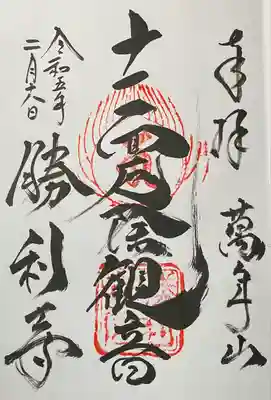 奉拝 萬年山
十一面厄除観音
勝利寺
令和五年
二月十八日